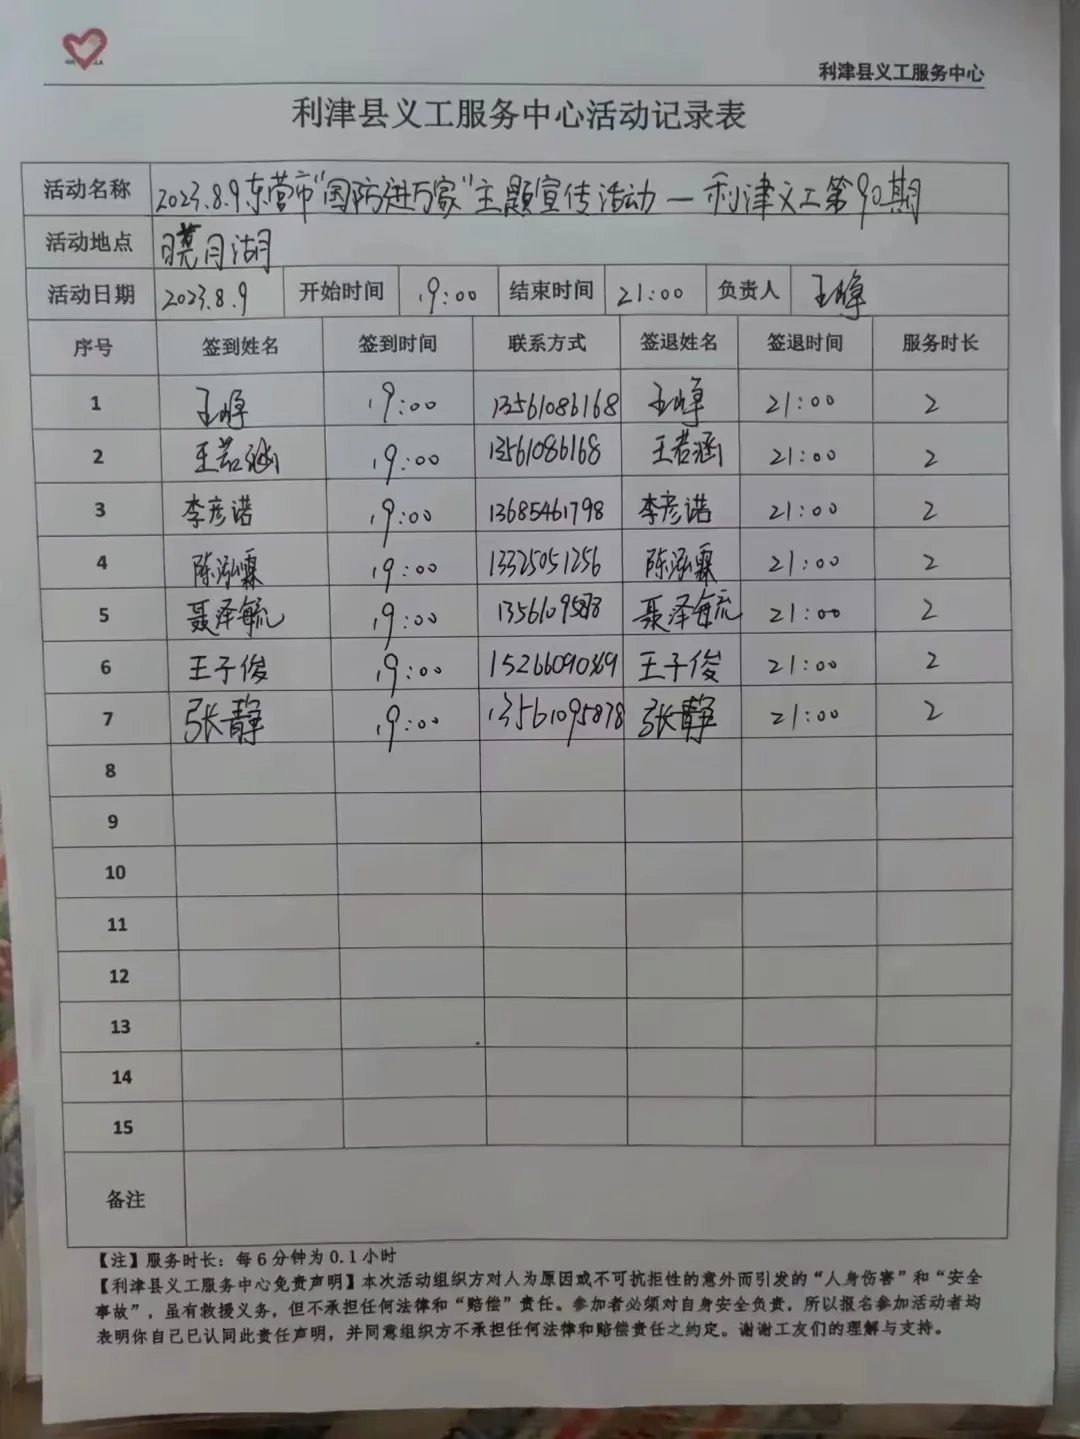 利津县义工服务中心
利津县义工服务中心活动记录表
活动名称 2023.8.9东营市"国防进万家"主题宣传活动—利津义工第90期
活动地点 月湖
活动日期 2023.8.9 开始时间 19:00 结束时间 21:00 负责人 王峥
序号 签到姓名 签到时间 联系方式 签退姓名 签退时间 服务时长
1 王峥 19:00 13561086168 王峥 21:00 2
2 王若涵 19:00 13561086168 王若涵 21:00 2
3 李彦诺 19:00 13685461798 李彦诺 21:00 2
4 陈泓霖 19:00 13325051256 陈泓霖 21:00 2
5 聂泽毓 19:00 聂泽毓 21:00 2
6 王子俊 19:00 15266090369 王子俊 21:00 2
7 张静 19:00 13561095878 张静 21:00 2
8
9
10
11
12
13
14
15
备注
【注】服务时长：每6分钟为0.1小时
【利津县义工服务中心免责声明】本次活动组织方对人为原因或不可抗拒性的意外而引发的"人身伤害"和"安全
事故"，虽有救援义务，但不承担任何法律和"赔偿"责任。参加者必须对自身安全负责，所以报名参加活动者均
表明你自己已认同此责任声明，并同意组织方不承担任何法律和赔偿责任之约定。谢谢工友们的理解与支持。